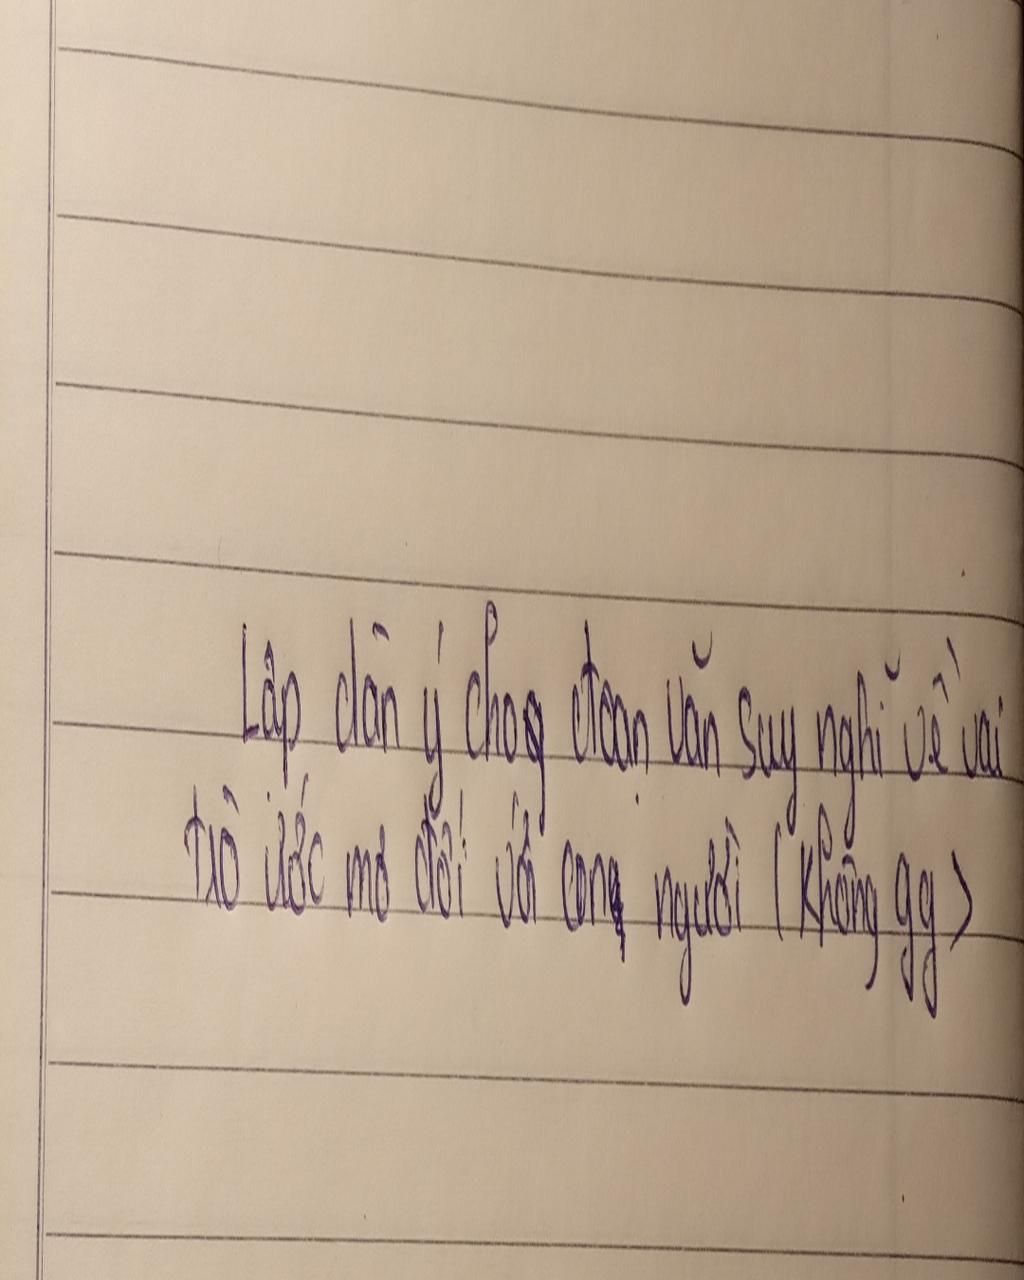 Lập dàn ý cho đoạn văn suy nghĩ về vai
trò ước mơ đối với con người (không gg)